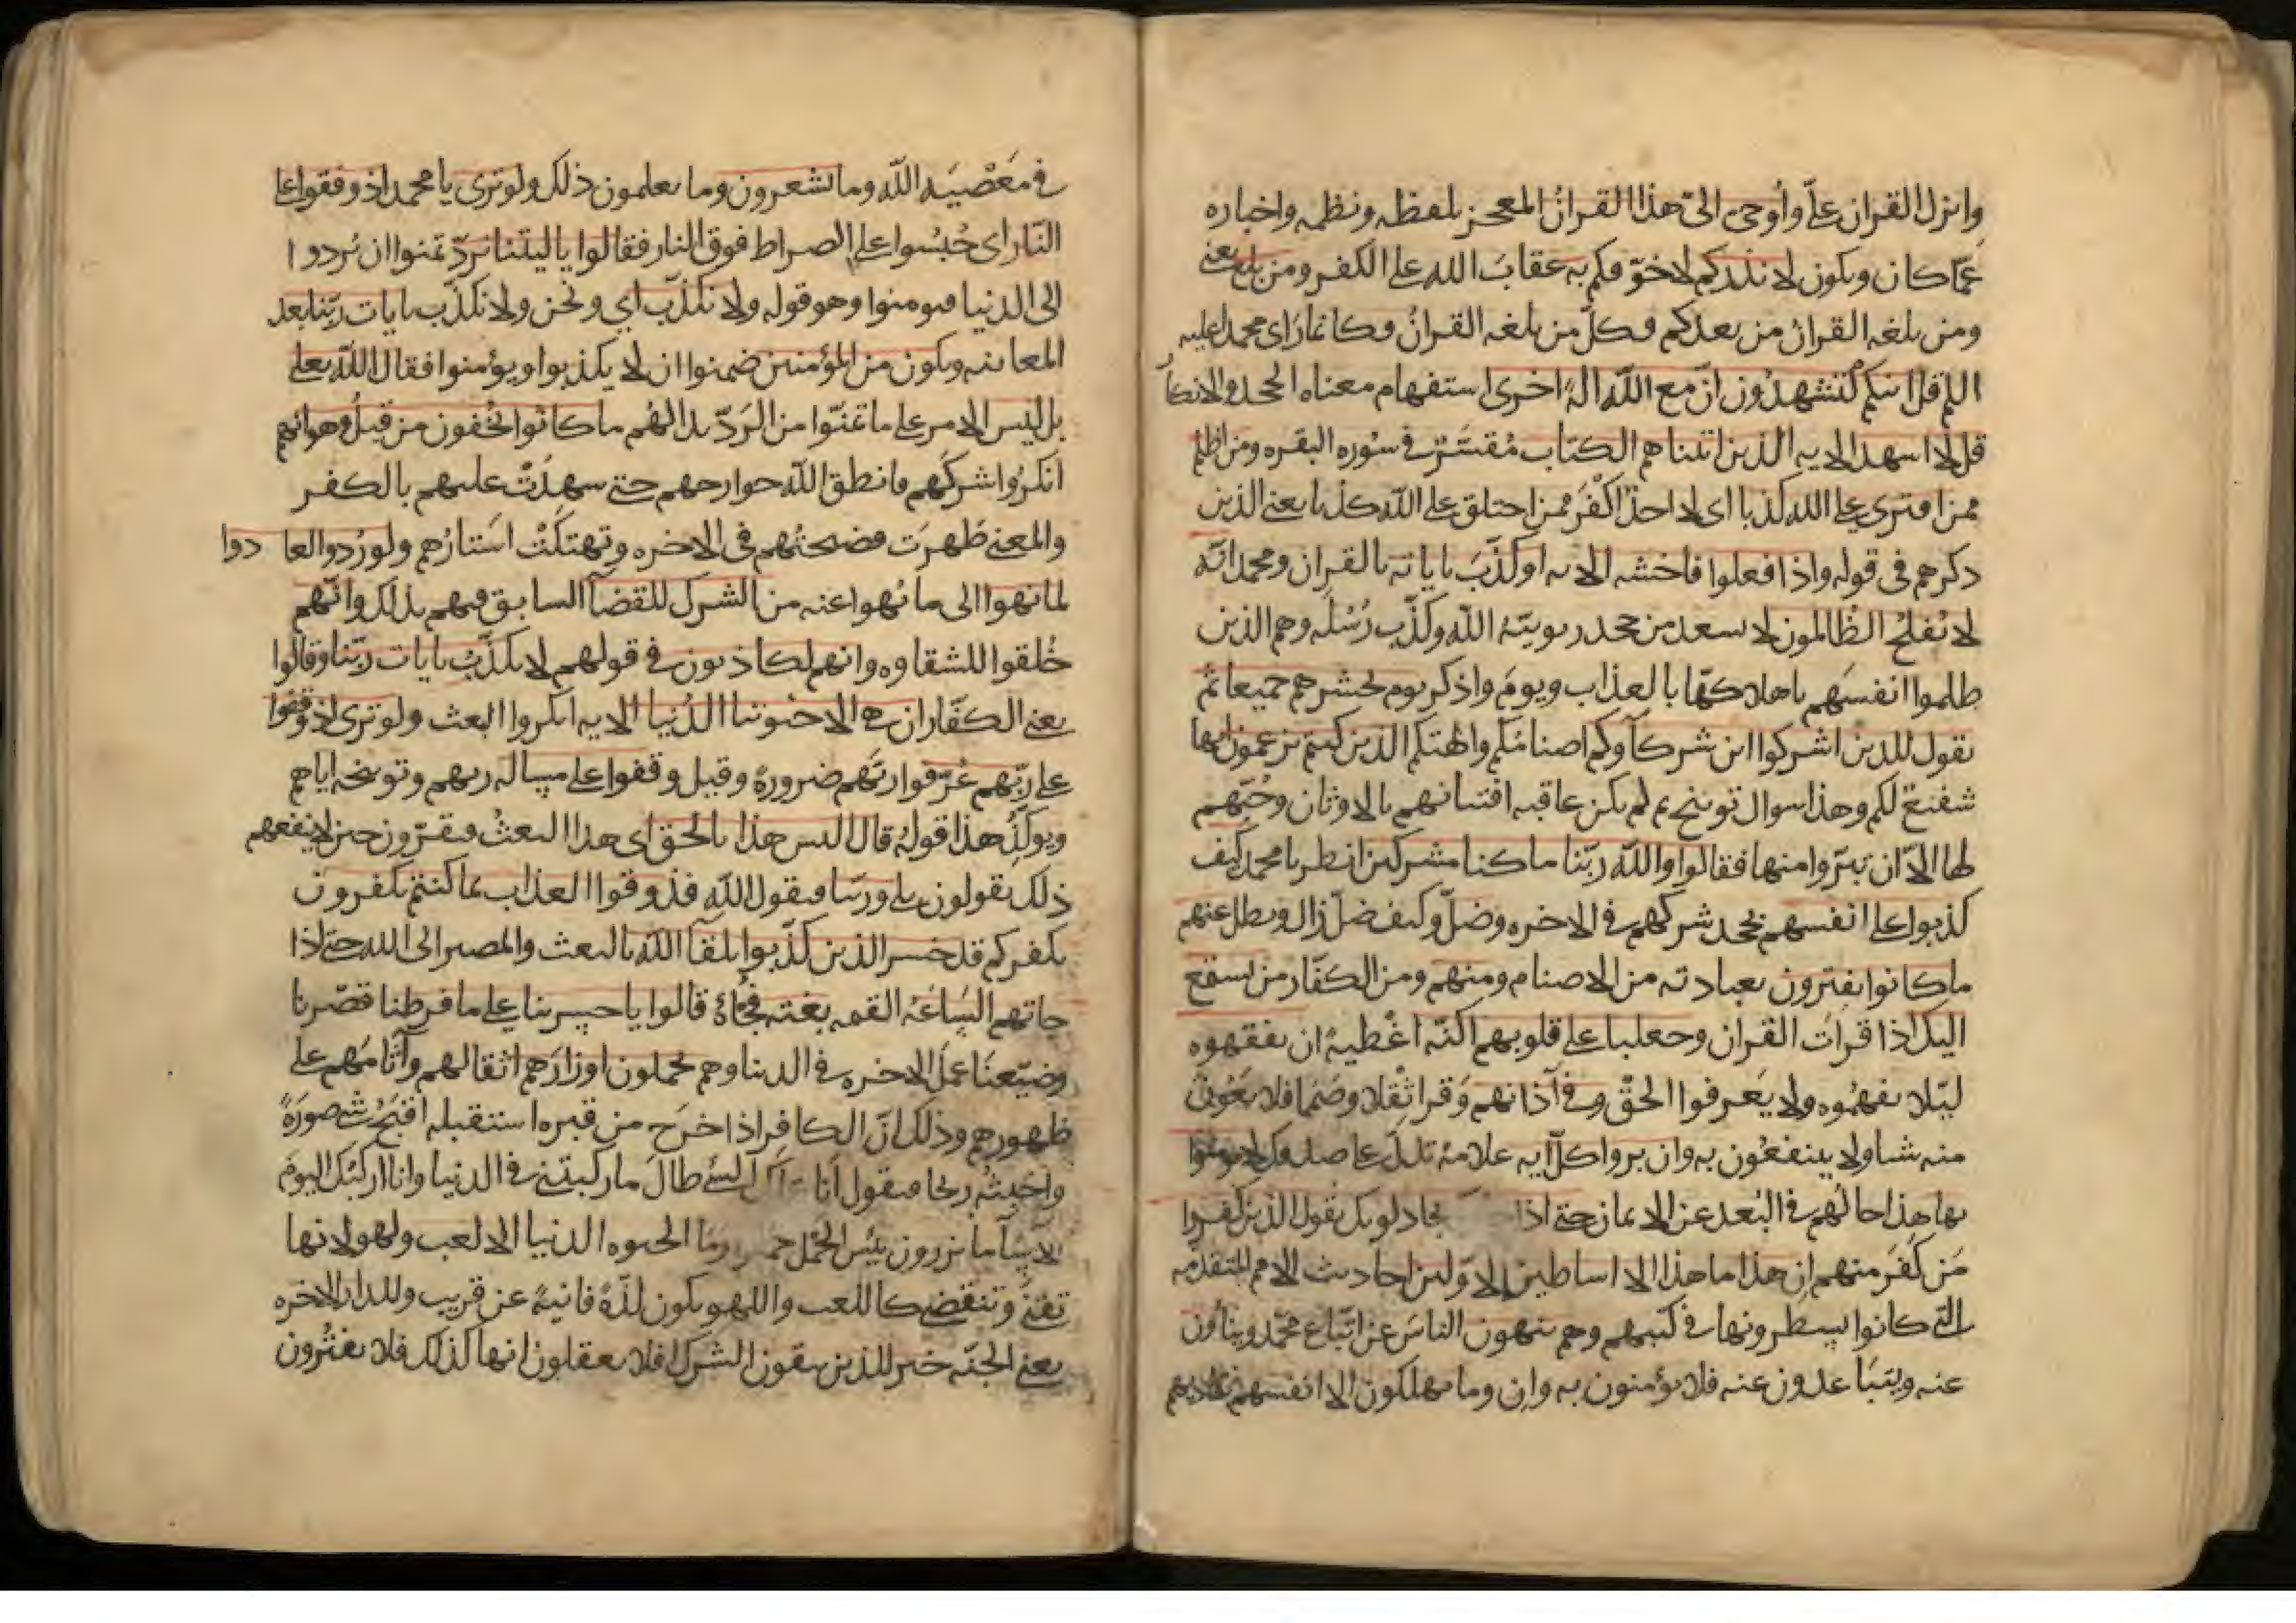 وانزل القران علىّ واُوحى الىّ هذا القرانُ المعجز بلفظه ونظمه واخباره
عمّا كان ويكون لانذركم لاخوّفكم به عقابَ الله على الكفر ومن بلغ يعنى
ومن بلغه القران من بعدكم فكلّ من بلغه القرانُ فكانما راى محمدا عليه
السلم قل ائنكم لتشهدُون انّ مع الله الهً اخرى استفهام معناه الجحد والانكار
قل لا اسهد الايه الذين اتيناهم الكتاب مُفسّرٌ فى سُوره البقره ومن اظلم
ممن افترى على الله كذبا اى لا احدَ اكْفَر ممن اختلق على الله كذبا يعنى الذين
ذكرهم فى قوله واذا فعلوا فاحشه الايه او كذّبَ باياته بالقران ومحمد انّه
لا يُفلحُ الظالمون لا يسعد من جحد ربوبيّهُ الله وكذّب رُسُله وهم الذين
ظلموا انفسَهم باهلاكها بالعذاب ويومَ واذكر يوم نحشرهم جميعا ثم
نقول للذين اشركوا اين شركآوكم اصنامُكم والهتكم الذين كنتم تزعمون انها
شفَعَ لكم وهذا سوال توبيخ ثم لم يكن عاقبه افتتانهم بالاوثان وحُبّهم
لها الاّ ان تبرّوا منها فقالوا والله ربّنا ما كنا مشركين انظر يا محمد كيف
كذبوا على انفسهم بجحد شركهم فى الاخره وضلّ وكيف ضلّ زال وبطل عنهم
ما كانوا يفترون بعبادته من الاصنام ومنهم ومن الكفّار من يستمع
اليك اذا قراتَ القران وجعلنا على قلوبهم اكنّه اغْطيهً ان يفقهوه
ليّلا يفهمُوه ولا يَعرفوا الحقّ وفى آذانهم وَقرا ثقلا وصَمَما فلا يَعُون
منه شيا ولا ينتفعُون به وان يروا كلّ ايه علامهً تدلّ على صدقك لا يومنوا
بها هذا حالُهم فى البُعد عن الايمان حتى اذا يجادلونك يقول الذين كفروا
مَن كفَرَ منهم ان هذا ما هذا الا اساطير الاوّلين احاديث الامم المتقدّمه
التى كانوا يسطرونها فى كتبهم وهم ينهون الناسَ عن اتّباع محمّد وينأون
عنه ويتبَاعدون عنه فلا يؤمنون به وان وما يهلكون الا انفسهم بتماديهم
فى مَعْصيَه الله وما يشعرون وما يعلمون ذلك ولو ترى يا محمد اذ وقفوا على
النّار اى حُبسُوا على الصراط فوق النار فقالوا يا ليتنا نردّ تمنوا ان يُردوا
الى الدنيا فيومنوا وهو قوله ولا نكذّب اي ونحن ولا نكذّب بايات ربّنا بعد
المعاينه ونكون من المؤمنين ضمنوا ان لا يكذبوا ويؤمنوا فقال الله تعلى
بل ليس الامر على ما تمنّوا من الردّ بدا لهُم ما كانُوا يُخفون من قبلُ وهو انهم
انكرُوا شركَهم فانطق الله جوارحهم حتى سهدَتْ عليهم بالكفر
والمعنى ظهرَت فضيحتُهم فى الاخره وتهتكَتْ اَستارُهم ولو رُدوا لعادوا
لما نهوا الى ما نُهوا عنه من الشرك للقضآ السابق فيهم بذلك وانّهم
خُلقوا للشقاوه وانهم لكاذبون فى قولهم لا نكذّبُ بايات ربّنا وقالوا
يعنى الكفّار ان هى الا حيوتنا الدُنيا الايه انكروا البعث ولو ترى اذ وقفوا
على ربّهم عُرّفوا ربّهم ضرورهً وقيل وقفوا على مسالهِ ربهم وتوبيخه اياهم
ويوكّدُ هذا قولهُ قال اليس هذا بالحق اى هذا البعثُ فيقرّون حين لا ينفعهم
ذلك يقولون بلى وربّنا فيقول الله فذوقوا العذاب بما كنتم تكفرون
بكفركم قد خسر الذين كذّبوا بلقآ الله بالبعث والمصير الى الله حتى اذا
جاتهم السَاعَهُ القيمه بغته فجأهً قالوا يا حسرتنا على ما فرطنا قصّرنا
وضيّعنَا عمَلَ الاخره فى الدنيا وهم يحملون اوزارَهم اثقالهم وآثامَهم على
ظهورهم وذلك انّ الكافر اذا خرَج من قبره استقبله اقبَحُ شى صورَةً
واخبثُه ريحا فيقول أنا السئ طالَ ما ركبتنى فى الدنيا وانا اركبُك اليومَ
الا سآ ما يزرون بئسَ الحمْل وما الحيوه الدنيا الا لعب ولهو لانها
تفنى وتنقضى كاللعب واللهو يكون لذّهً فانيهً عن قريب وللدار الاخره
يعنى الجنّه خير للذين يتقون الشرك افلا يعقلون انها كذلك فلا يفتُرون